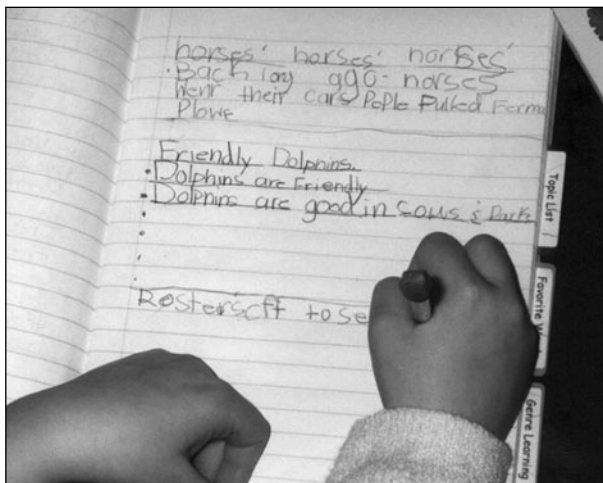 horses' horses' horses'
• Back long ago - horses
Were their cars Pople Pulled Ferms
Plowe
Friendly Dolphins.
• Dolphins are Friendly
• Dolphins are good in sows & Parks
to se
Topic List
Favorite
Genre Learning